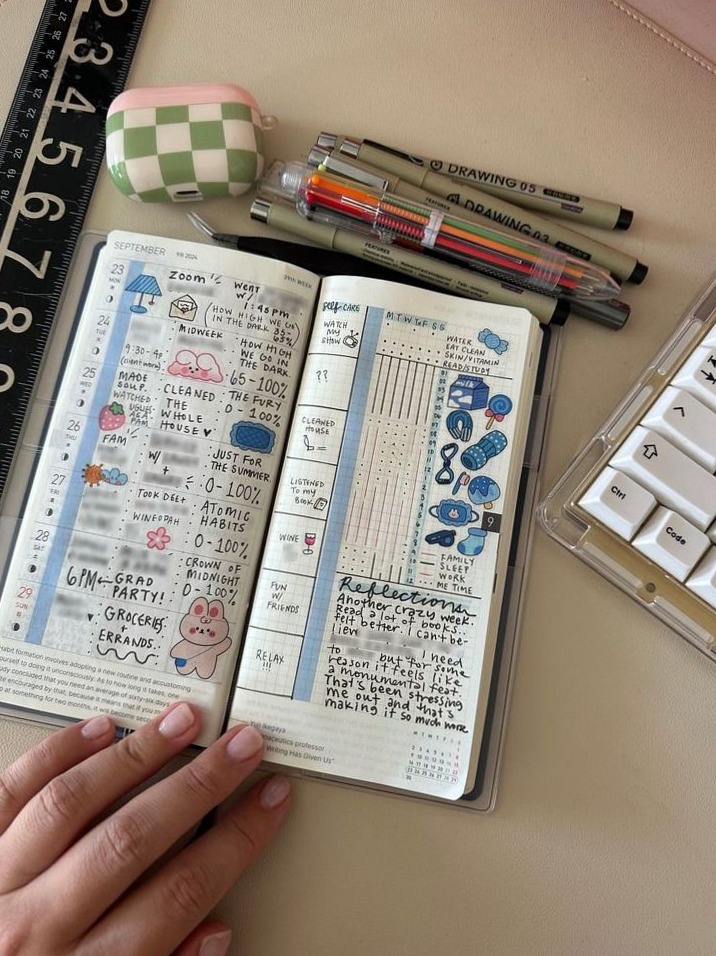 2
3
4
5
6
7
8
DRAWING 05
DRAWING 03
FEATURES
FEATURES
SEPTEMBER 9月 2024
39th WEEK
23
MON
ZOOM
WENT
W/
1:45PM
(HOW HIGH WE GO
IN THE DARK 35-
65%)
24
TUE
MIDWEEK
9:30-4P
(client work)
HOW HIGH
WE GO IN
THE DARK
65-100%
25
WED
MADE
SOUP.
WATCHED
UGLIES
AS A
FAM
CLEANED
THE
WHOLE
HOUSE ♥
THE FURY
0-100%
26
THU
FAM
W/
+
JUST FOR
THE SUMMER
0-100%
27
FRI
TOOK DEE+
WINE@PAH
ATOMIC
HABITS
0-100%
28
SAT
6PM GRAD
PARTY!
CROWN OF
MIDNIGHT
0-100%
29
SUN
GROCERIES
+
ERRANDS.
Habit formation involves adopting a new routine and accustoming
yourself to doing it unconsciously. As to how long it takes, one
study concluded that you need an average of sixty-six days.
be encouraged by that, because it means that if you
up at something for two months, it will become
Self-CARE
M T W T F S S
WATCH
MY
SHOW
WATER
EAT CLEAN
SKIN/VITAMIN
READ/STUDY
??
MILK
CLEANED
HOUSE
LISTENED
TO MY
BOOK
WINE
9
FAMILY
SLEEP
WORK
ME TIME
FUN
W/
FRIENDS
RELAX
!!!
Reflections
Another crazy week.
Read a lot of books..
felt better. I can't be-
liev
I need
to but for some
reason it feels like
a monumental feat.
That's been stressing
me out and that's
making it so much worse
Yuji Ikegaya
Pharmaceutics professor
Writing Has Given Us"
M T W T F S S
1
2 3 4 5 6 7 8
9 10 11 12 13 14 15
16 17 18 19 20 21 22
23 24 25 26 27 28 29
30
Ctrl
Code